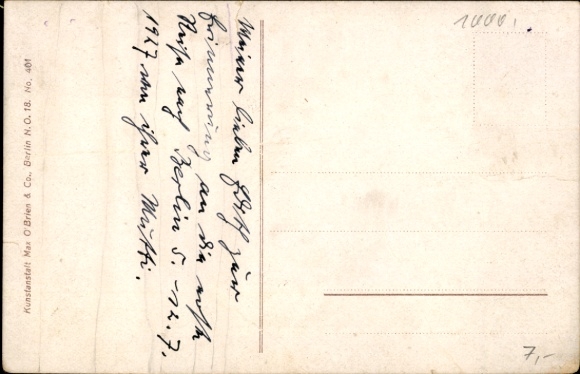 Meiner lieben Edith zur
Erinnerung an die erste
Reise nach Berlin 5.-12.7.
1927 von ihrer Mutti.
Kunstanstalt Max O'Brien & Co., Berlin N.O. 18. No. 401
1000,
7,-